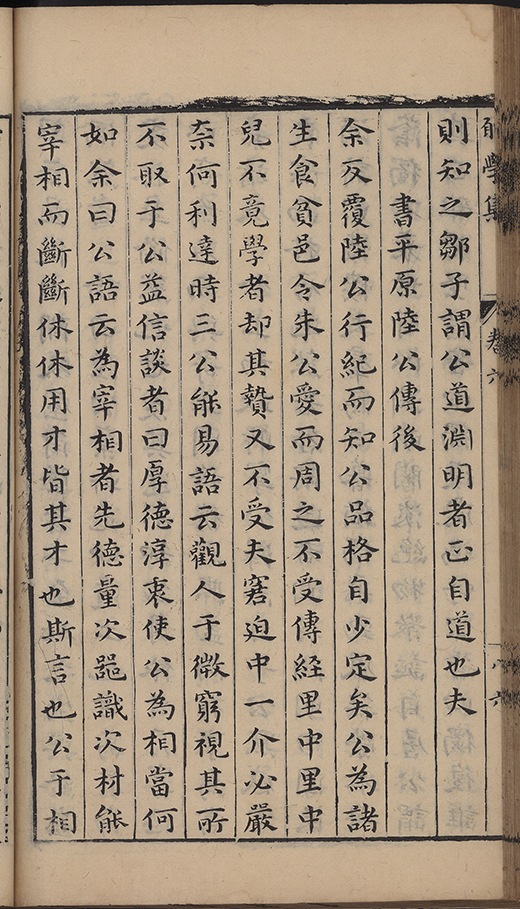 學集
卷六
八六
則知之鄒子謂公道淵明者正自道也夫
書平原陸公傳後
余反覆陸公行紀而知公品格自少定矣公為諸
生食貧邑令朱公愛而周之不受傳経里中里中
兒不竟學者却其贄又不受夫窘迫中一介必嚴
柰何利達時三公能易語云觀人于微窮視其所
不取于公益信談者曰厚德淳衷使公為相當何
如余曰公語云為宰相者先德量次噐識次材能
宰相而斷斷休休用才皆其才也斯言也公于相